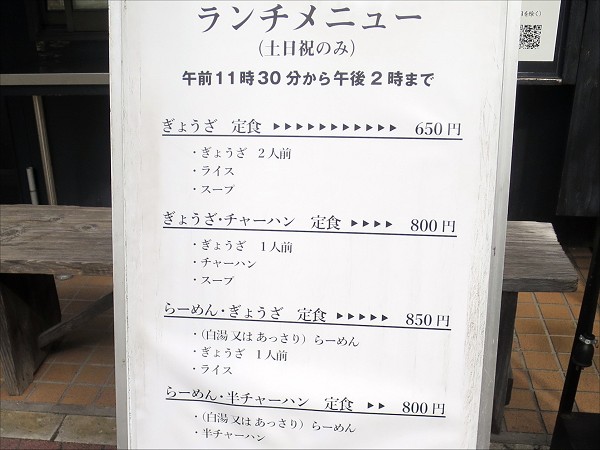 ランチメニュー
（土日祝のみ）
午前11時30分から午後2時まで
ぎょうざ 定食 ▶▶▶▶▶▶▶▶▶▶▶ 650円
・ぎょうざ 2人前
・ライス
・スープ
ぎょうざ・チャーハン 定食 ▶▶▶▶ 800円
・ぎょうざ 1人前
・チャーハン
・スープ
らーめん・ぎょうざ 定食 ▶▶▶▶▶ 850円
・（白湯又はあっさり）らーめん
・ぎょうざ 1人前
・ライス
らーめん・半チャーハン 定食 ▶▶ 800円
・（白湯又はあっさり）らーめん
・半チャーハン